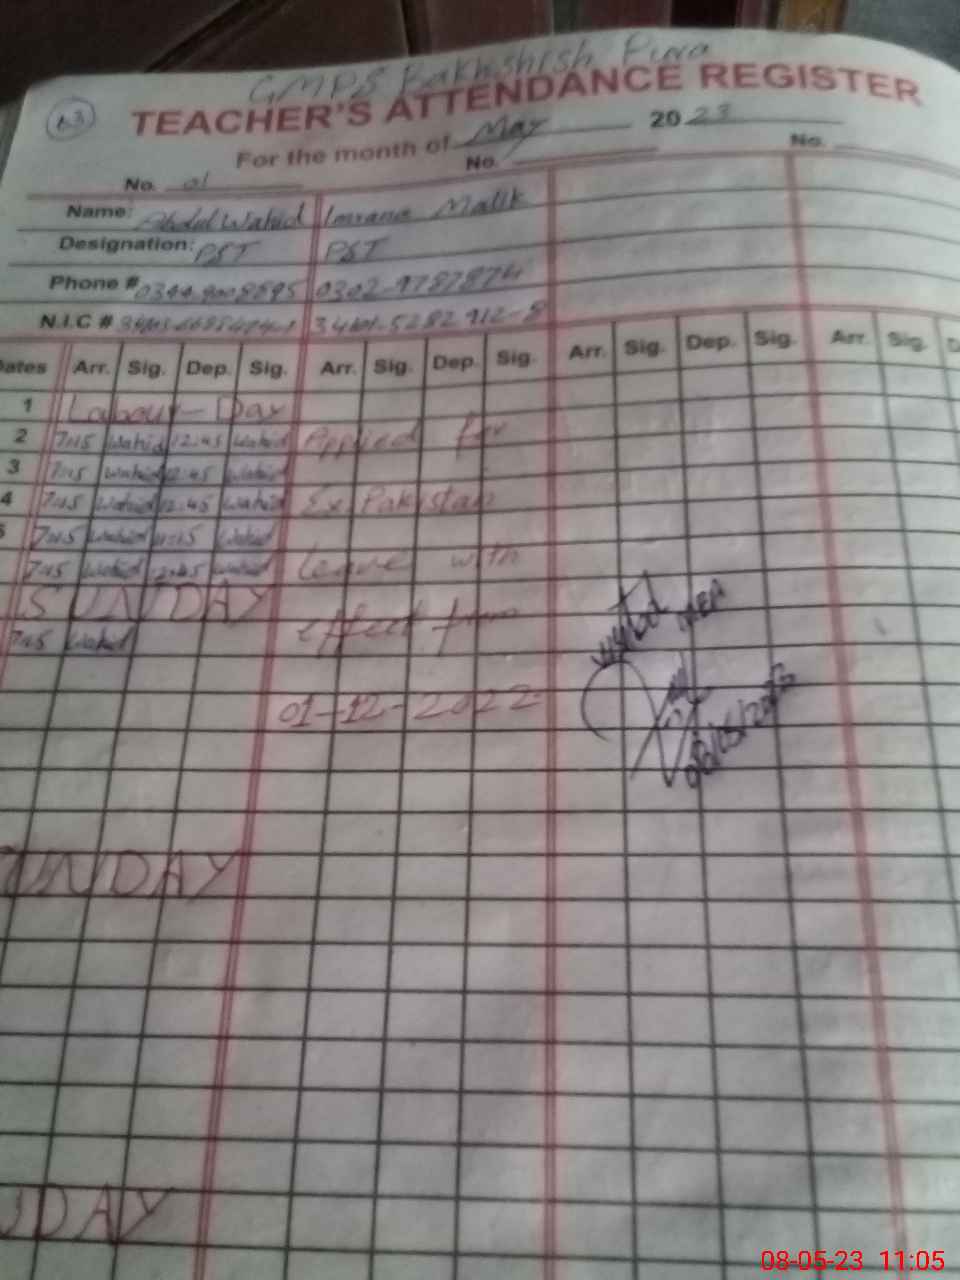 GMPS Bakhshish Pura
63 TEACHER'S ATTENDANCE REGISTER
For the month of May 2023
No. 01 No. No.
Name: Abdul Wahid Imrana Malik
Designation: PST PST
Phone # 0302-9787874
N.I.C # 34601-5282912-8
Dates Arr. Sig. Dep. Sig. Arr. Sig. Dep. Sig. Arr. Sig. Dep. Sig. Arr. Sig. D
1 Labour-Day
2 7:15 Wahid 12:45 Wahid Applied for
3 7:15 Wahid 12:45 Wahid
4 7:15 Wahid 12:45 Wahid Ex Pakistan
5 7:15 Wahid 11:15 Wahid
7:15 Wahid 12:45 Wahid Leave with
SUNDAY
7:15 Wahid effect from
visited MEA
01-12-2022
08/05/2023
SUNDAY
UDAY
08-05-23 11:05